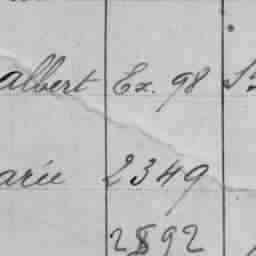 albert Ex. 98
arie 2349
2892